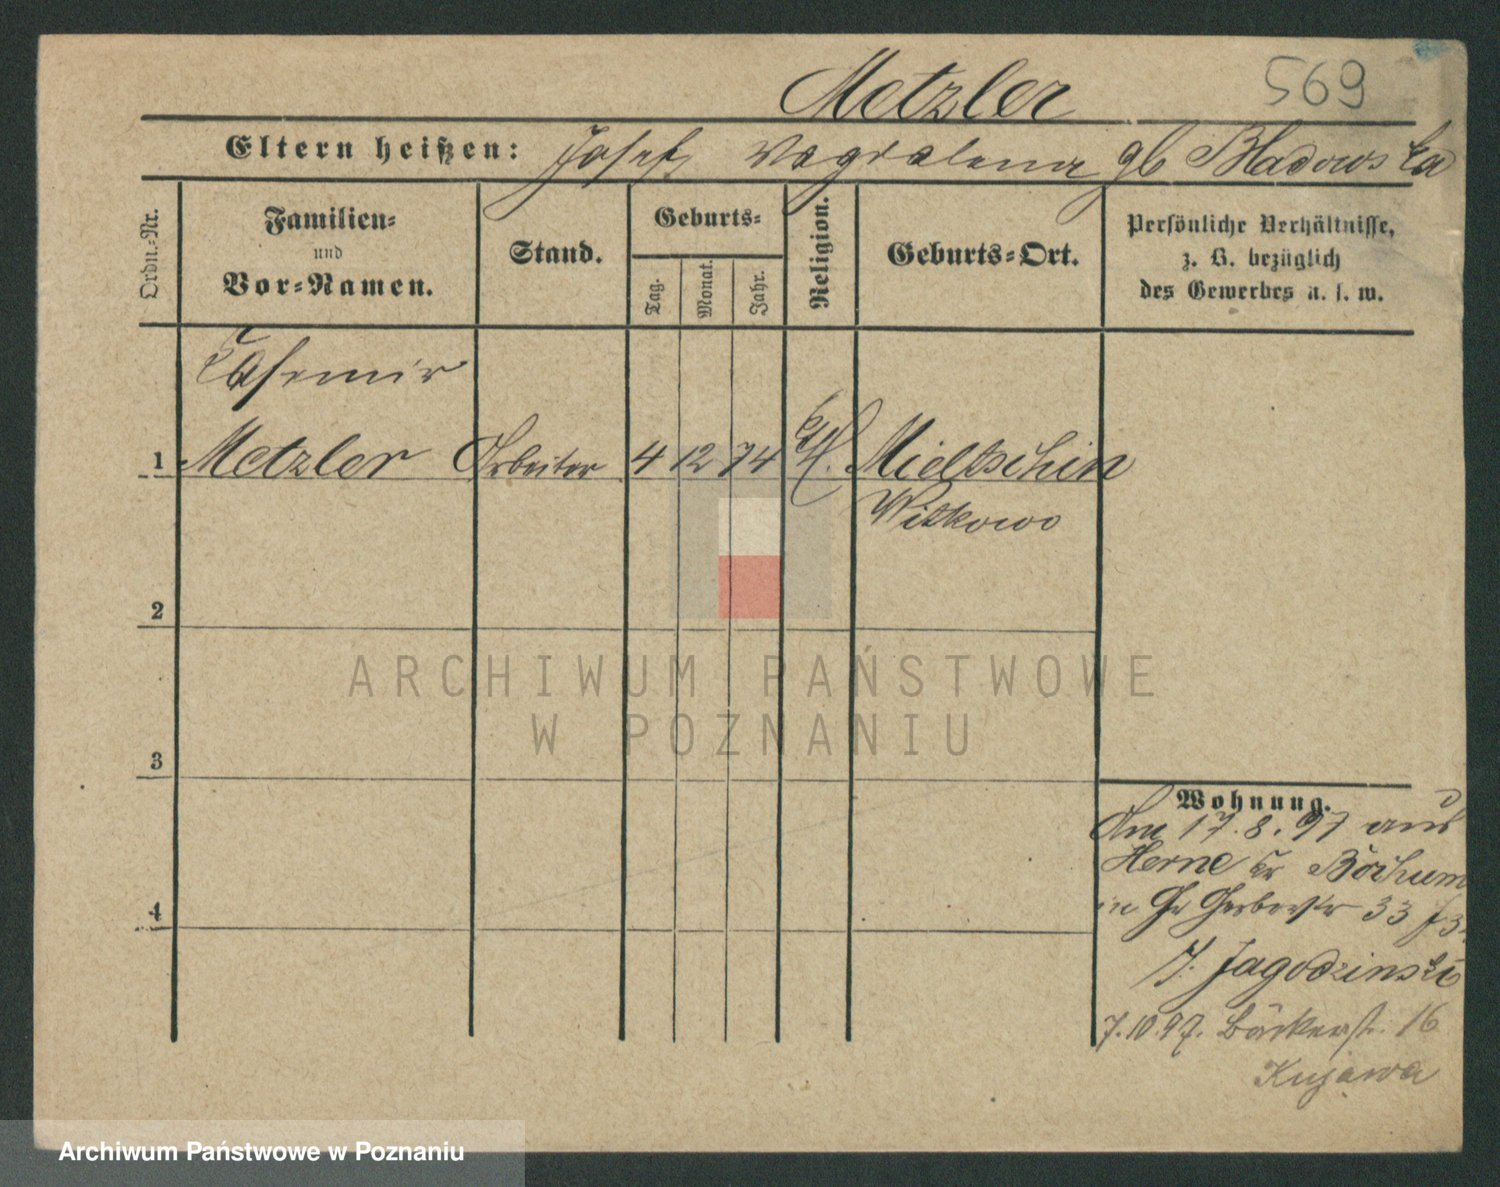 Metzler 569
Eltern heißen: Josef, Magdalena gb Bladowska
Ordn.-Nr.
Familien-
und
Vor-Namen.
Stand.
Geburts-
Tag.
Monat.
Jahr.
Religion.
Geburts-Ort.
Persönliche Verhältnisse,
z. B. bezüglich
des Gewerbes u. s. w.
Casimir
1 Metzler Arbeiter 4 12 74 kth. Mieltschin
Witkowo
2
3
4
Wohnung.
Am 17.8.97 aus
Herne Kr Bochum
in Gr Gerberstr 33
Jagodzinski
7.10.97. Bäckerst. 16
Kujawa
ARCHIWUM PAŃSTWOWE
W POZNANIU
Archiwum Państwowe w Poznaniu